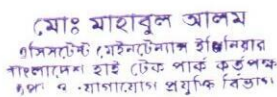 মোঃ মাহাবুল আলম
এসিসটেন্ট মেইনটেনান্স ইঞ্জিনিয়ার
বাংলাদেশ হাই টেক পার্ক কর্তৃপক্ষ
যোগাযোগ প্রযুক্তি বিভাগ